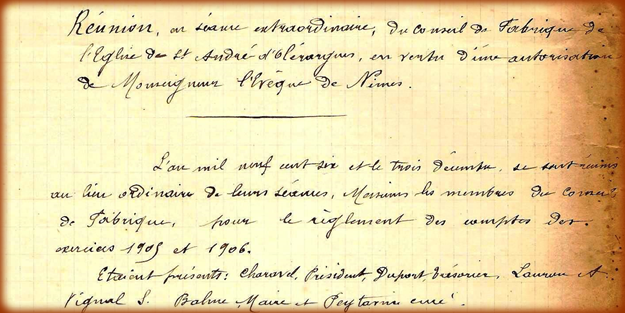 Réunion, en séance extraordinaire, du Conseil de Fabrique de
l'Eglise de St André d'Olérargues, en vertu d'une autorisation
de Monseigneur l'Evêque de Nimes.
L'an mil neuf cent six et le trois décembre, se sont réunis
au lieu ordinaire de leurs séances, Messieurs les membres du Conseil
de Fabrique, pour le règlement des comptes des
exercices 1905 et 1906.
Etaient présents: Charavel, Président, Duport, trésorier, A.
Vignal S. Balme, Maire et Peytavin curé.